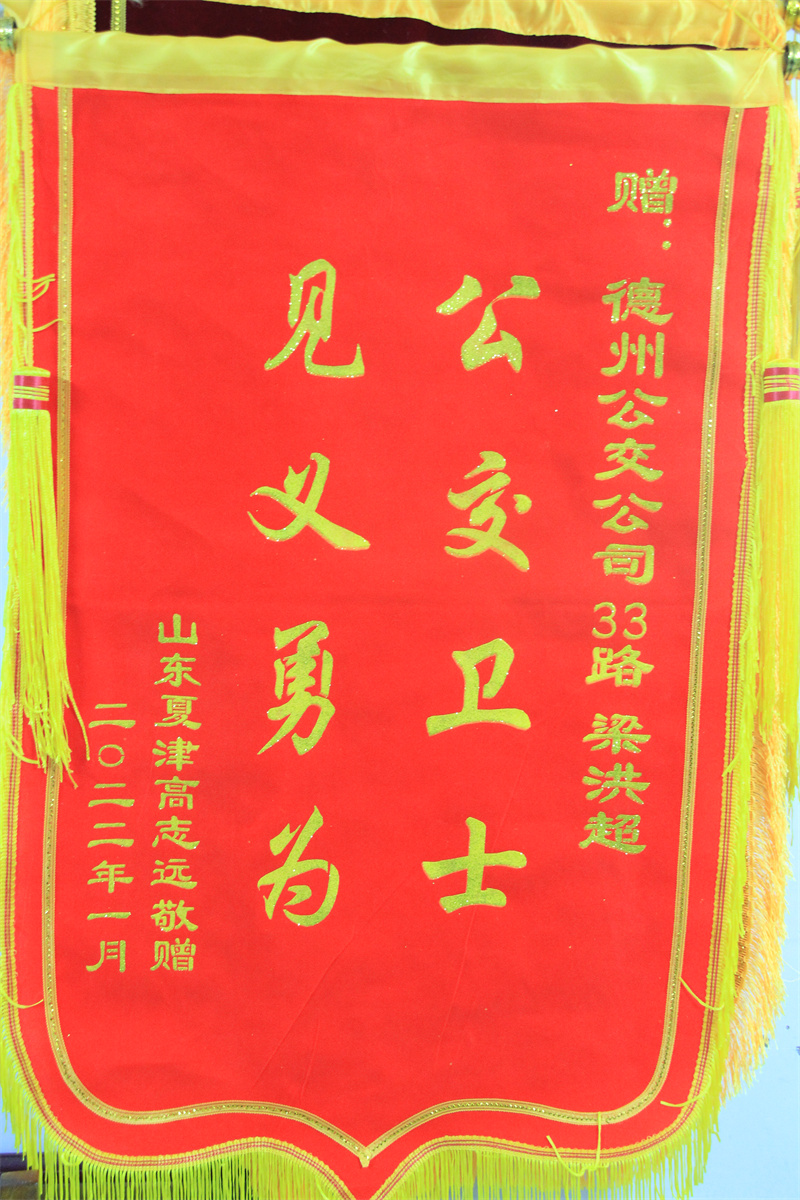 赠：德州公交公司33路 梁洪超
公交卫士
见义勇为
山东夏津高志远敬赠
二〇二二年一月